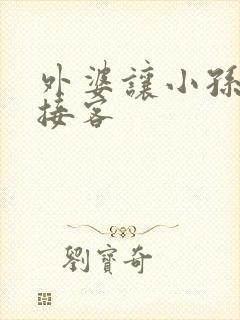 外婆讓小孫
接客
劉寶奇